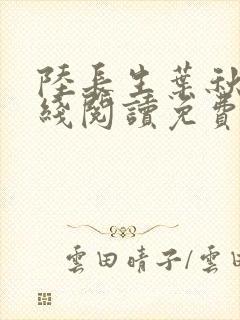 陸長生葉秋
綫閱讀免費
雲田晴子/雲田